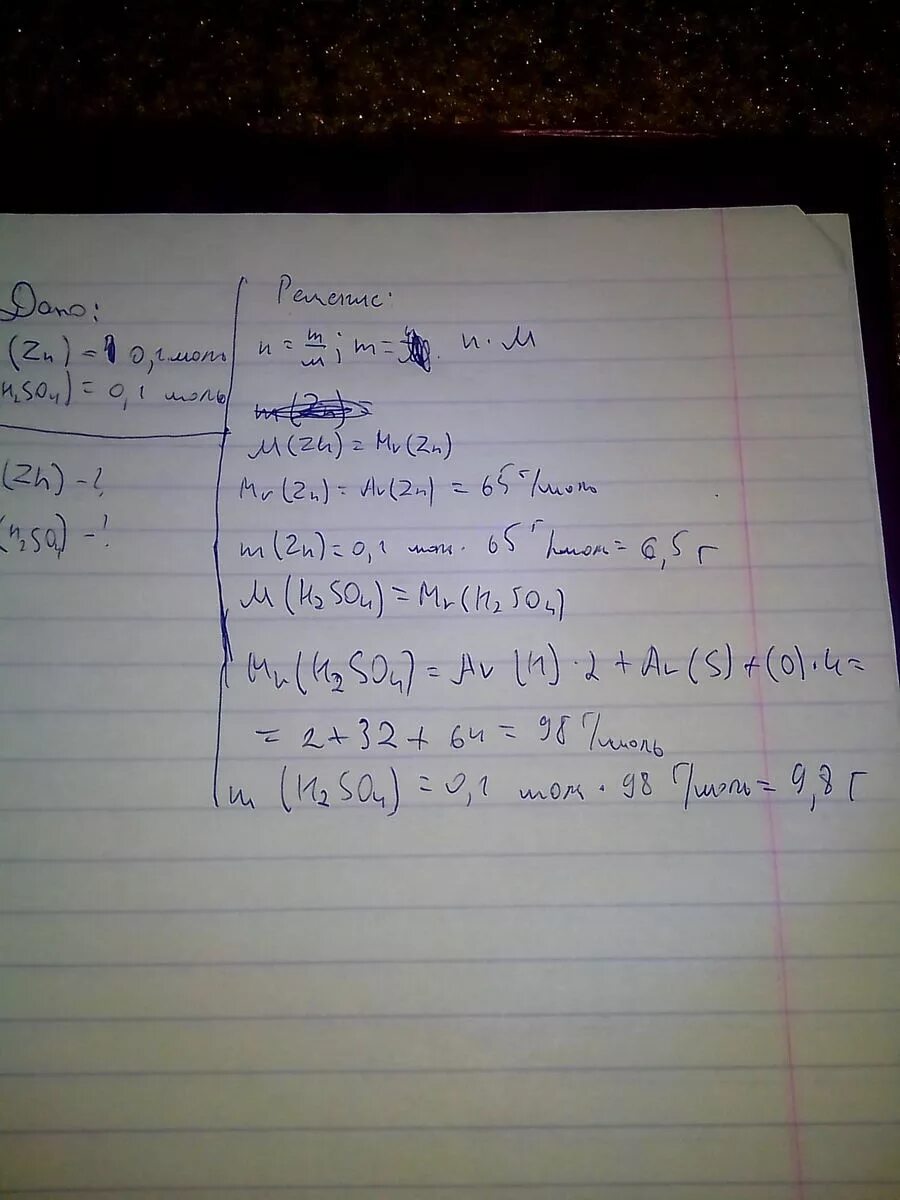 Дано:
(Zn) = 0,1 моль
H₂SO₄) = 0,1 моль
(Zn) - ?
(H₂SO₄) - ?
Решение:
n = m/M; m = n · M
m(Zn) =
M(Zn) = Mr(Zn)
Mr(Zn) = Ar(Zn) = 65 г/моль
m(Zn) = 0,1 мол · 65 г/мол = 6,5 г
M(H₂SO₄) = Mr(H₂SO₄)
Mr(H₂SO₄) = Ar(H) · 2 + Ar(S) + (O) · 4 =
= 2 + 32 + 64 = 98 г/моль
m(H₂SO₄) = 0,1 мол · 98 г/моль = 9,8 г